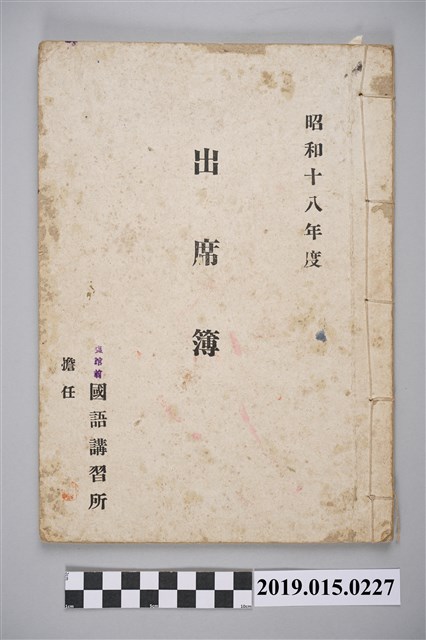 昭和十八年度
出席簿
國語講習所
擔任
2019.015.0227